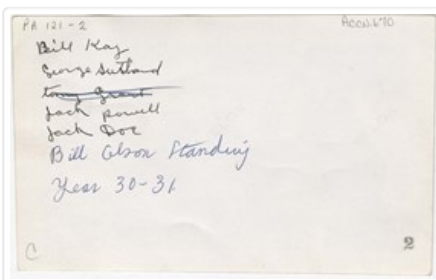 PA 121-2
Accn. 670
Bill Kay
George Sutland
tony Grant
Jack Powell
Jack Doe
Bill Olson Standing
Year 30-31
C
2